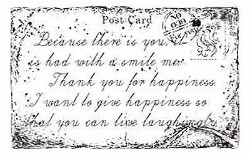 Post Card
Because there is you,
is had with a smile me.
Thank you for happiness.
I want to give happiness so
that you can live laughingly.
NO